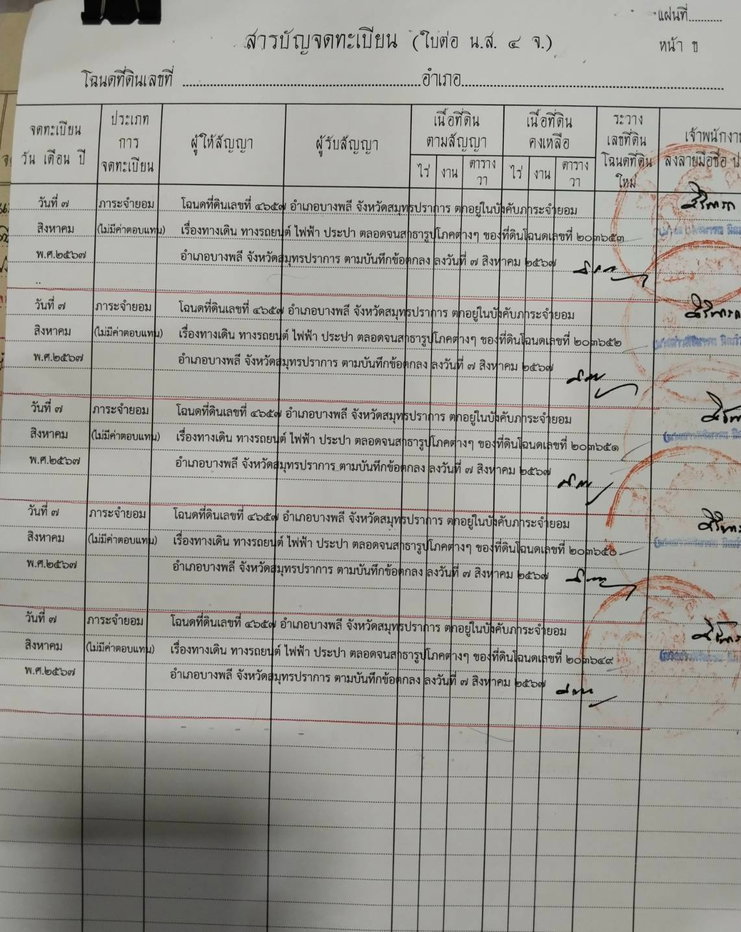 แผ่นที่..........
สารบัญจดทะเบียน (ใบต่อ น.ส. ๔ จ.)
หน้า ข
โฉนดที่ดินเลขที่ ............ อำเภอ............
จดทะเบียน วัน เดือน ปี
ประเภท การ จดทะเบียน
ผู้ให้สัญญา
ผู้รับสัญญา
เนื้อที่ดิน ตามสัญญา
ไร่ งาน ตาราง วา
เนื้อที่ดิน คงเหลือ
ไร่ งาน ตาราง วา
ระวาง เลขที่ดิน โฉนดที่ดิน ใหม่
เจ้าพนักงาน ลงลายมือชื่อ
วันที่ ๗ ภาระจำยอม โฉนดที่ดินเลขที่ ๔๖๕๗ อำเภอบางพลี จังหวัดสมุทรปราการ ตกอยู่ในบังคับภาระจำยอม
สิงหาคม (ไม่มีค่าตอบแทน) เรื่องทางเดิน ทางรถยนต์ ไฟฟ้า ประปา ตลอดจนสาธารูปโภคต่างๆ ของที่ดินโฉนดเลขที่ ๒๐๓๖๕๓
พ.ศ.๒๕๖๗ อำเภอบางพลี จังหวัดสมุทรปราการ ตามบันทึกข้อตกลง ลงวันที่ ๗ สิงหาคม ๒๕๖๗
วันที่ ๗ ภาระจำยอม โฉนดที่ดินเลขที่ ๔๖๕๗ อำเภอบางพลี จังหวัดสมุทรปราการ ตกอยู่ในบังคับภาระจำยอม
สิงหาคม (ไม่มีค่าตอบแทน) เรื่องทางเดิน ทางรถยนต์ ไฟฟ้า ประปา ตลอดจนสาธารูปโภคต่างๆ ของที่ดินโฉนดเลขที่ ๒๐๓๖๕๒
พ.ศ.๒๕๖๗ อำเภอบางพลี จังหวัดสมุทรปราการ ตามบันทึกข้อตกลง ลงวันที่ ๗ สิงหาคม ๒๕๖๗
วันที่ ๗ ภาระจำยอม โฉนดที่ดินเลขที่ ๔๖๕๗ อำเภอบางพลี จังหวัดสมุทรปราการ ตกอยู่ในบังคับภาระจำยอม
สิงหาคม (ไม่มีค่าตอบแทน) เรื่องทางเดิน ทางรถยนต์ ไฟฟ้า ประปา ตลอดจนสาธารูปโภคต่างๆ ของที่ดินโฉนดเลขที่ ๒๐๓๖๕๑
พ.ศ.๒๕๖๗ อำเภอบางพลี จังหวัดสมุทรปราการ ตามบันทึกข้อตกลง ลงวันที่ ๗ สิงหาคม ๒๕๖๗
วันที่ ๗ ภาระจำยอม โฉนดที่ดินเลขที่ ๔๖๕๗ อำเภอบางพลี จังหวัดสมุทรปราการ ตกอยู่ในบังคับภาระจำยอม
สิงหาคม (ไม่มีค่าตอบแทน) เรื่องทางเดิน ทางรถยนต์ ไฟฟ้า ประปา ตลอดจนสาธารูปโภคต่างๆ ของที่ดินโฉนดเลขที่ ๒๐๓๖๕๐
พ.ศ.๒๕๖๗ อำเภอบางพลี จังหวัดสมุทรปราการ ตามบันทึกข้อตกลง ลงวันที่ ๗ สิงหาคม ๒๕๖๗
วันที่ ๗ ภาระจำยอม โฉนดที่ดินเลขที่ ๔๖๕๗ อำเภอบางพลี จังหวัดสมุทรปราการ ตกอยู่ในบังคับภาระจำยอม
สิงหาคม (ไม่มีค่าตอบแทน) เรื่องทางเดิน ทางรถยนต์ ไฟฟ้า ประปา ตลอดจนสาธารูปโภคต่างๆ ของที่ดินโฉนดเลขที่ ๒๐๓๖๔๙
พ.ศ.๒๕๖๗ อำเภอบางพลี จังหวัดสมุทรปราการ ตามบันทึกข้อตกลง ลงวันที่ ๗ สิงหาคม ๒๕๖๗